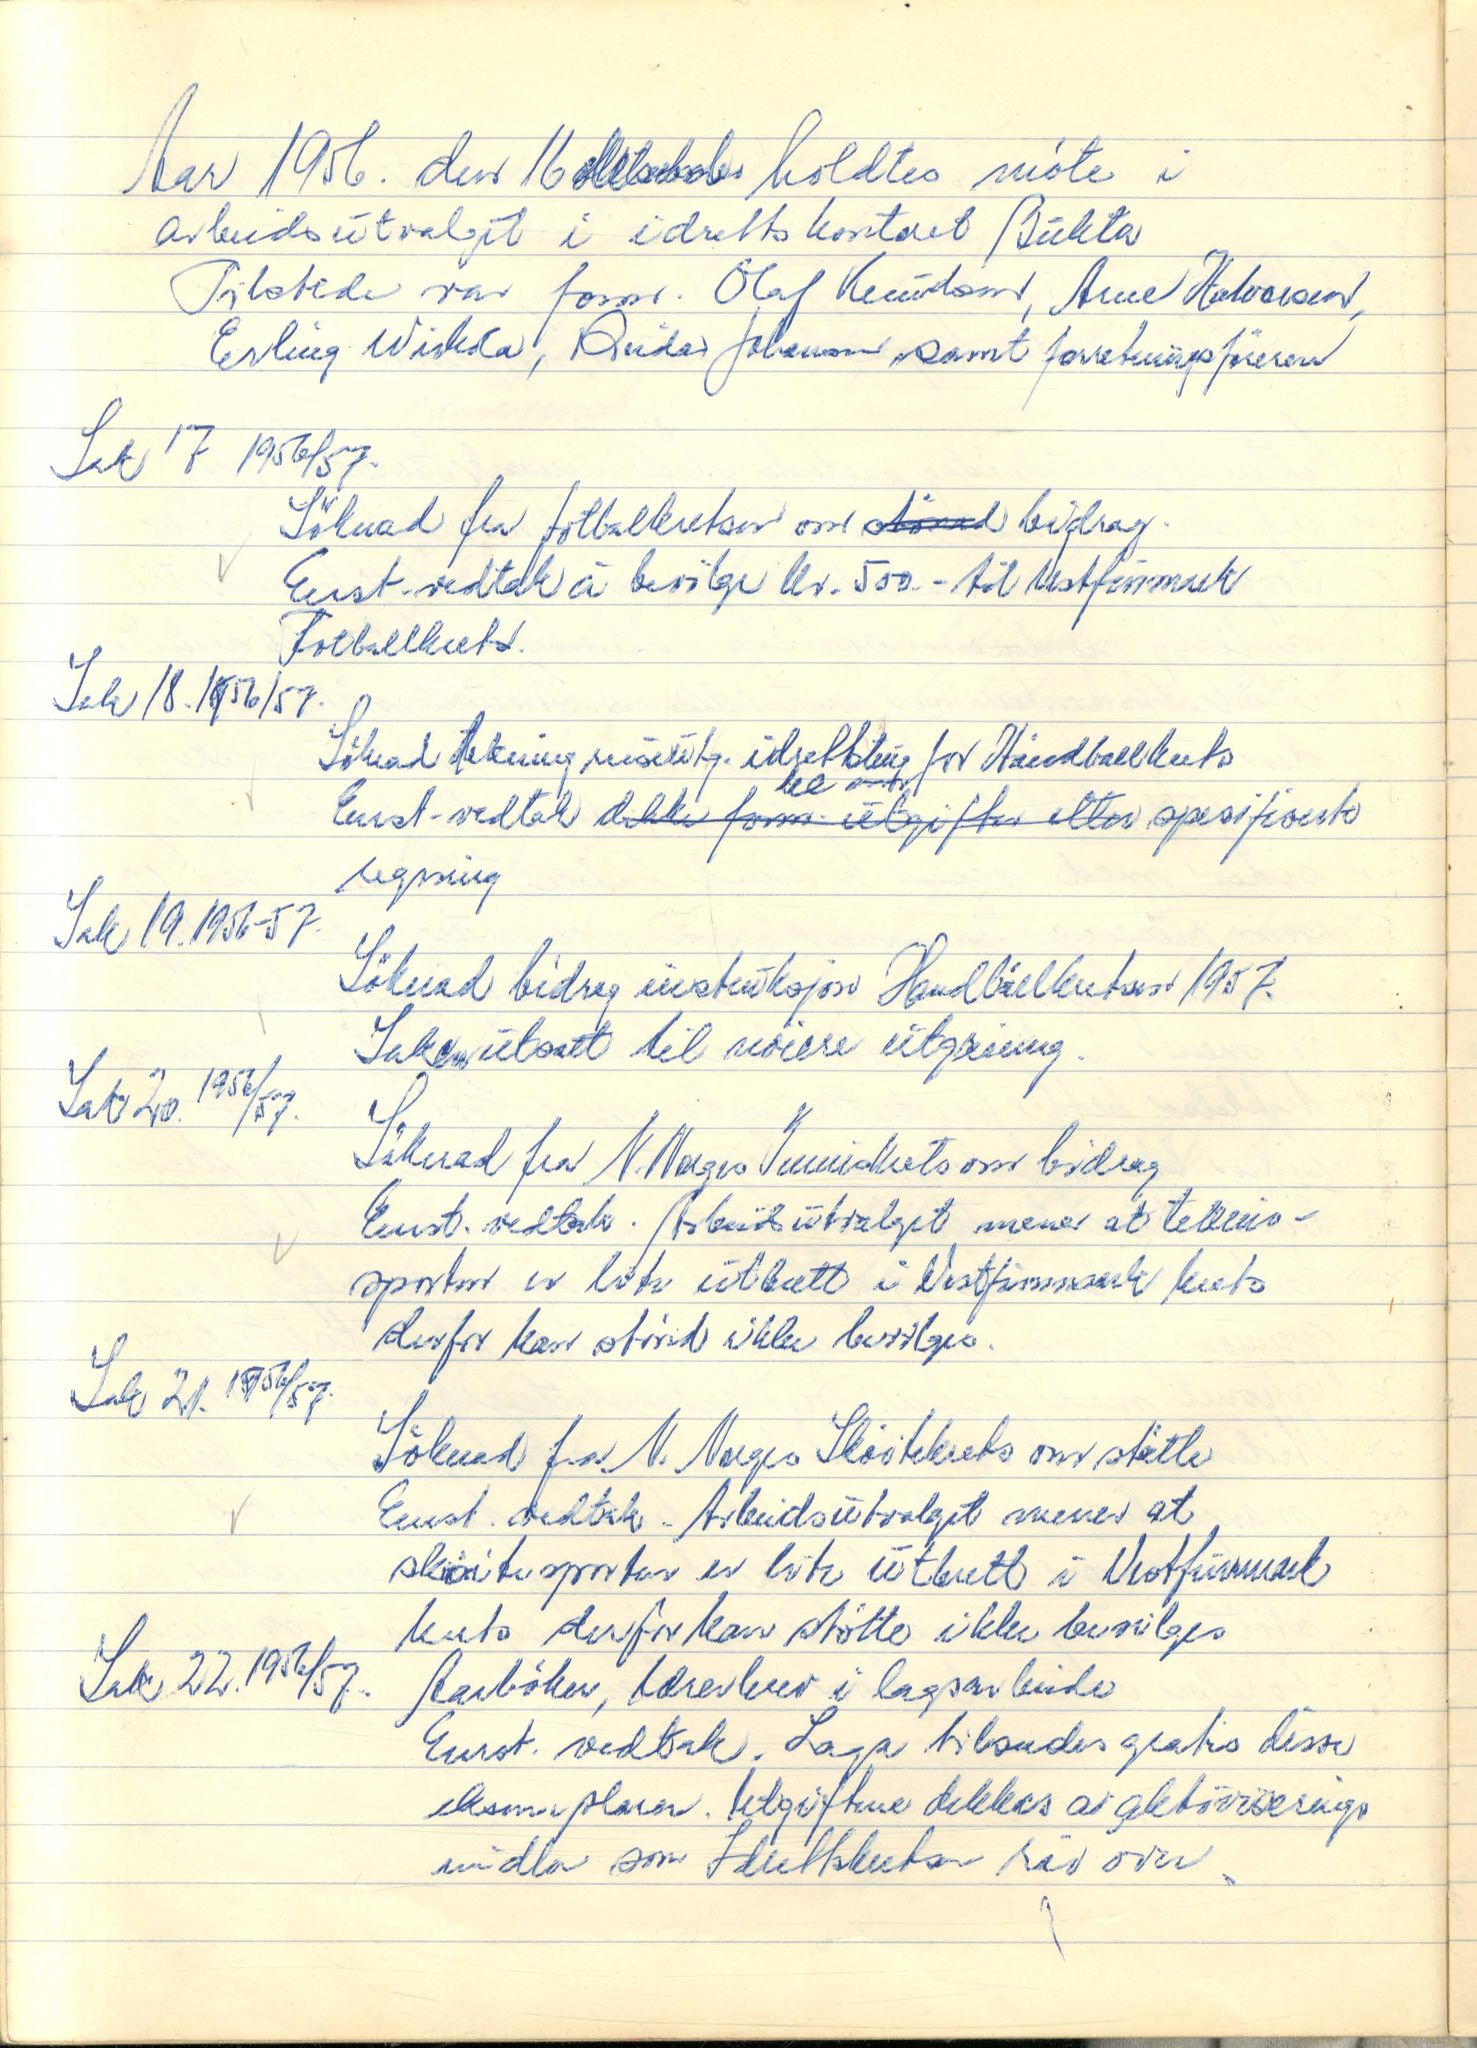 Aar 1956. den 16 oktober holdtes møte i
arbeidsutvalget i idrettskontoret Bukta
Tilstede var form. Olaf Knudsen, Arne Halvorsen,
Erling Wisløa, Reidar Johansen samt forretningsføreren
Sak 17 1956/57.
Söknad fra fotballkretsen om stönad bidrag.
Enst. vedtak å bevilge kr. 500.- til Vestfinnmark
Fotballkrets.
Sak 18. 1956/57.
Söknad dekning reiseutg. idrettsting for Håndballkrets
be om
Enst. vedtak dekke form. utgifter etter spesifiserte
regning
Sak 19. 1956-57.
Söknad bidrag instruksjon Handballkretsen 1957.
Saken utsatt til nöiere utgreiing.
Sak 20. 1956/57.
Söknad fra N. Norges Tenniskrets om bidrag
Enst. vedtak. Arbeidsutvalget mener at tennis-
sporten er lite utbrett i Vestfinnmark krets
derfor kan stönad ikke bevilges.
Sak 21. 1956/57.
Söknad fra N. Norges Sköitekrets om stötte
Enst. vedtak. Arbeidsutvalget mener at
sköitesporten er lite utbrett i Vestfinnmark
krets derfor kan stötte ikke bevilges
Sak 22. 1956/57.
Aarböker, lærebrev i lagsarbeide
Enst. vedtak. Laga tilsendes gratis disse
eksemplarer. Utgiftene dekkes av aktiviserings
midler som Idrettskretsen rår over.